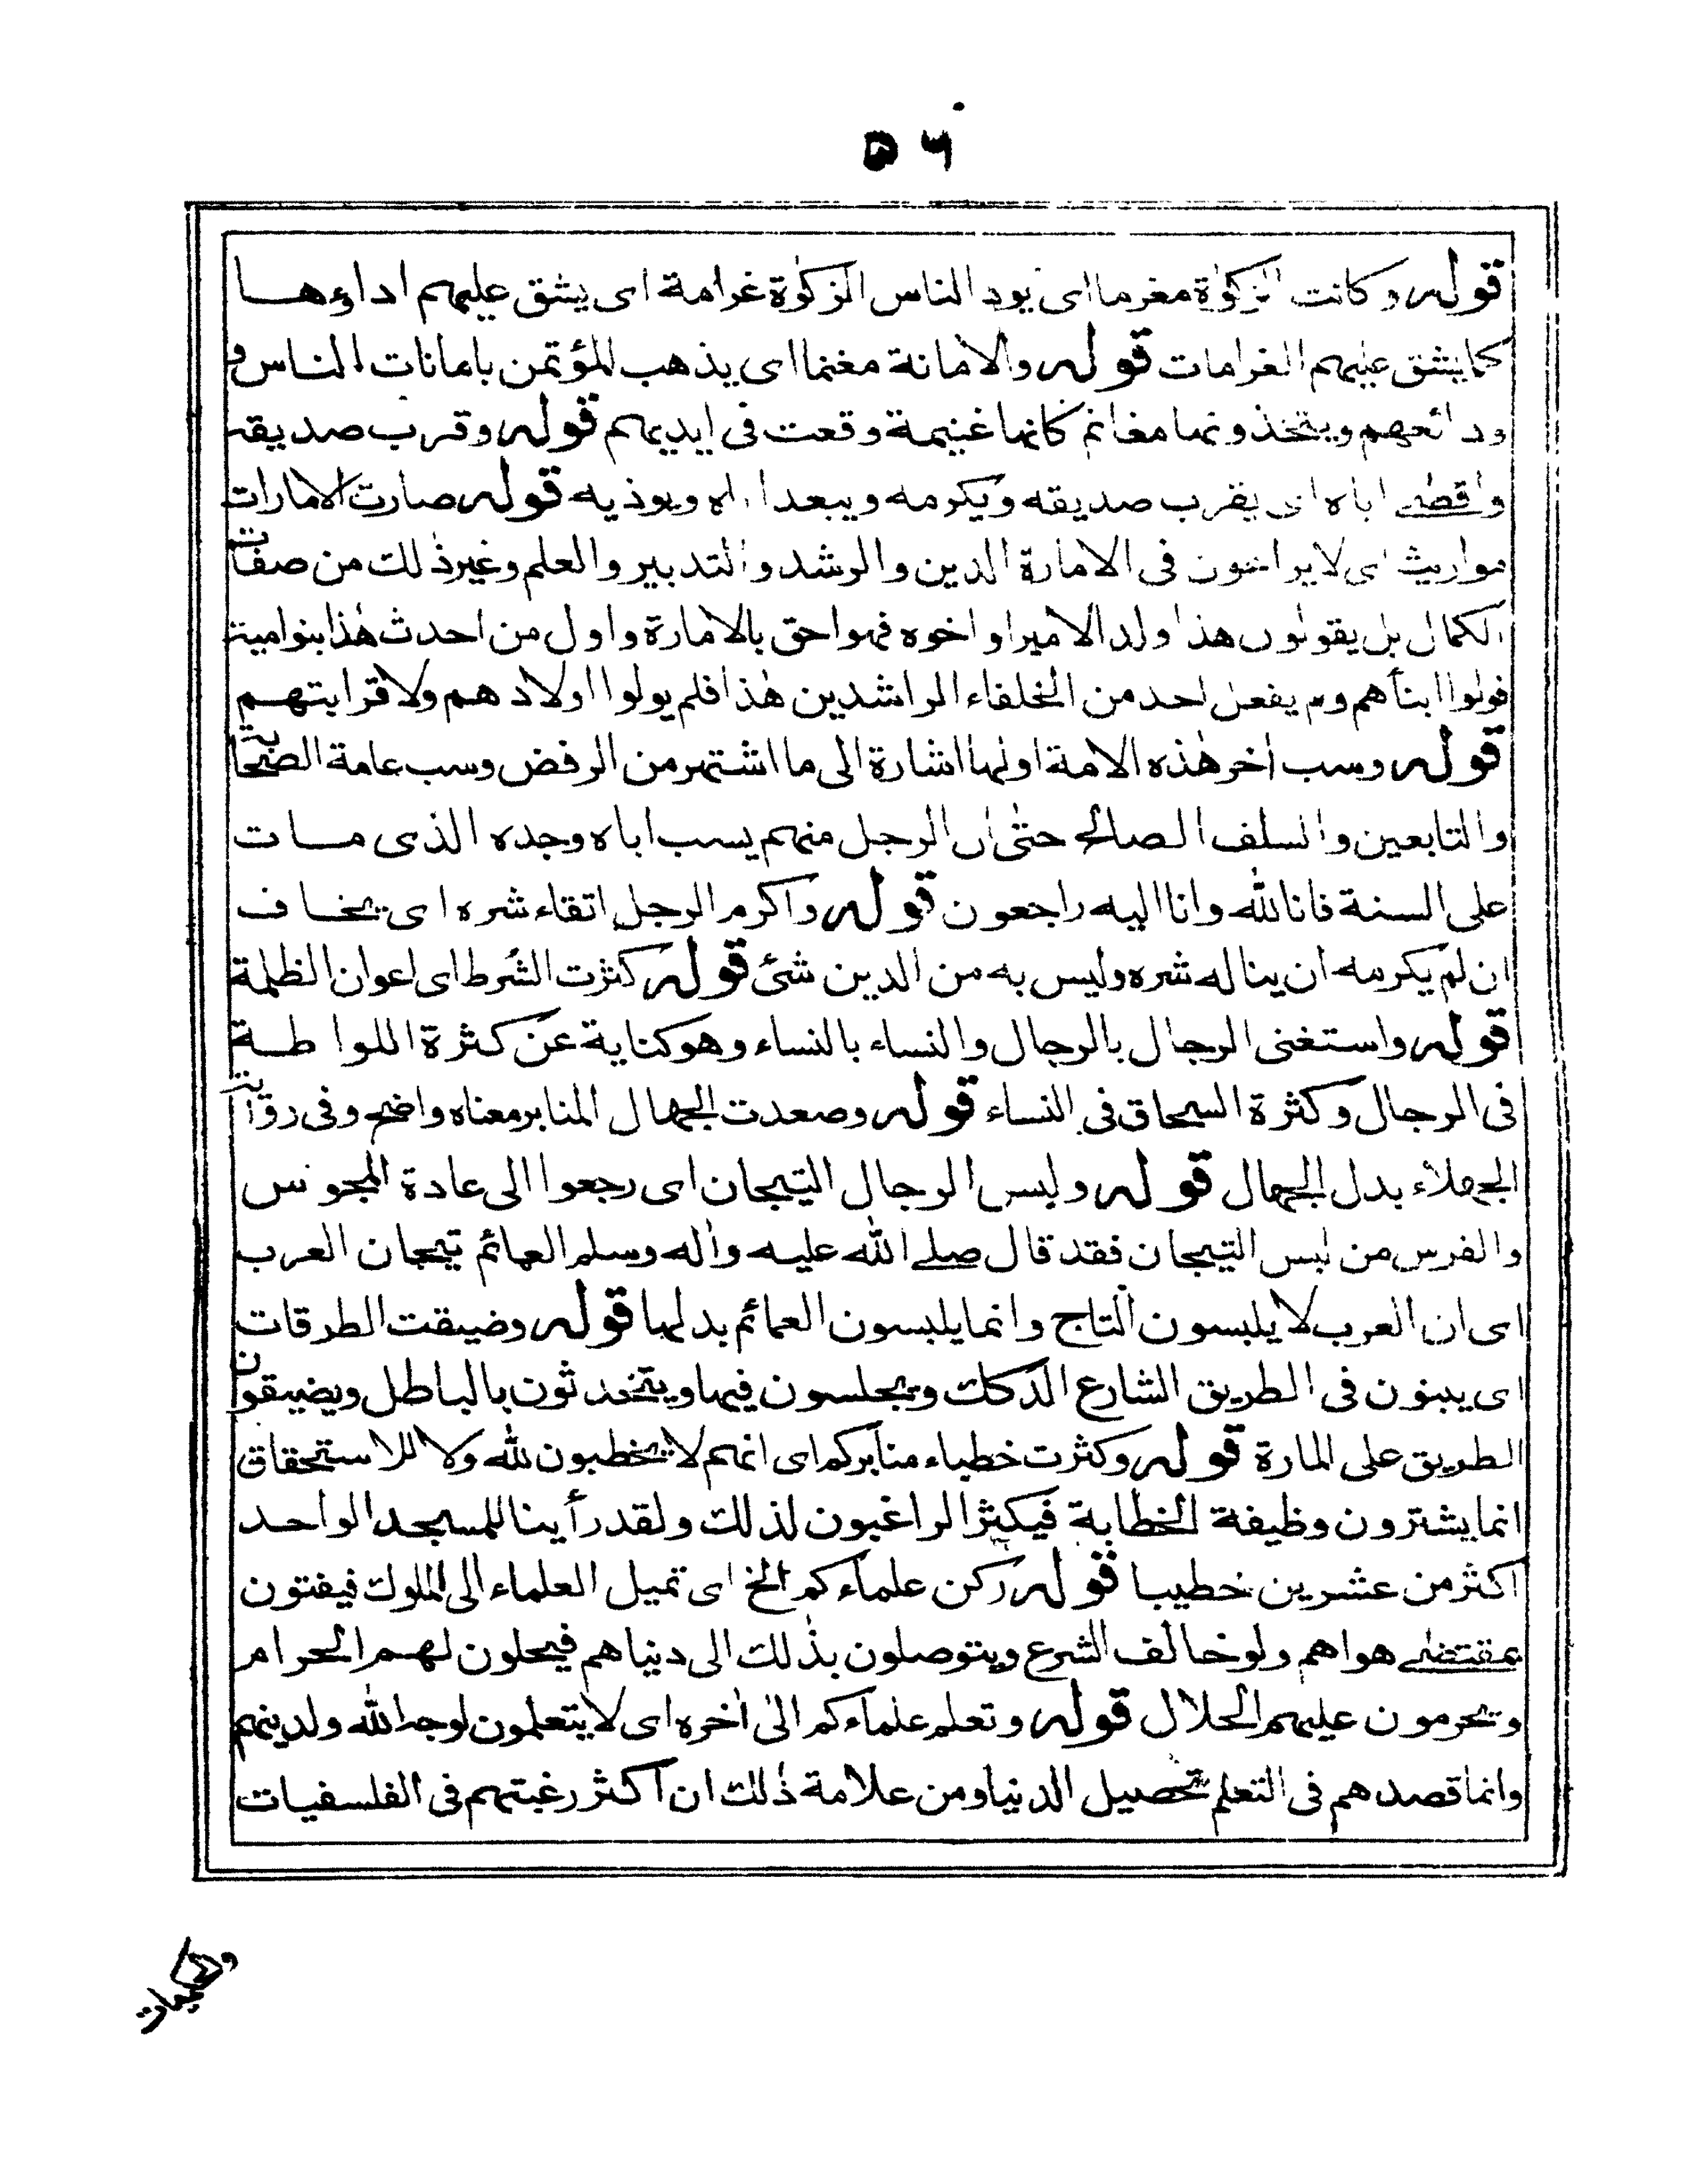 ٥٦
قوله وكانت الزكوٰة مغرما اى يود الناس الزكوٰة غرامة اى يشق عليهم اداؤها
كما يشق عليهم الغرامات قوله والامانة مغنما اى يذهب المؤتمن بامانات الناس و
ودائعهم ويتخذونها مغانم كانها غنيمة وقعت فى ايديهم قوله وقرب صديقه
واقصٰے اباه اى يقرب صديقه ويكرمه ويبعد اباه ويوذيه قوله صارت الامارات
مواريث اى لا يراعون فى الامارة الدين والرشد والتدبير والعلم وغير ذٰلك من صفات
الكمال بل يقولون هذا ولد الامير او اخوه فهو احق بالامارة واول من احدث هٰذا بنو امية
فولوا ابنأهم ولم يفعل احد من الخلفاء الراشدين هٰذا فلم يولوا اولادهم ولا قرابتهم
قوله وسب اٰخر هٰذه الامة اولها اشارة الى ما اشتهر من الرفض وسب عامة الصحابة
والتابعين والسلف الصالح حتٰى ان الرجل منهم يسب اباه وجده الذى مات
على السنة فانا لله وانا اليه راجعون قوله واكرم الرجل اتقاء شره اى يخاف
ان لم يكرمه ان يناله شره وليس به من الدين شئ قوله كثرت الشُرط اى اعوان الظلمة
قوله واستغنى الرجال بالرجال والنساء بالنساء وهو كناية عن كثرة اللواطة
فى الرجال وكثرة السحاق فى النساء قوله وصعدت الجهال المنابر معناه واضح وفى رواية
الجهلاء بدل الجهال قوله ولبس الرجال التيجان اى رجعوا الى عادة المجوس
والفرس من لبس التيجان فقد قال صلے الله عليه واٰله وسلم العمائم تيجان العرب
اى ان العرب لا يلبسون التاج وانما يلبسون العمائم بدلها قوله وضيقت الطرقات
اى يبنون فى الطريق الشارع الدكك ويجلسون فيها ويتحدثون بالباطل ويضيقون
الطريق على المارة قوله وكثرت خطباء منابركم اى انهم لا يخطبون لله ولا للاستحقاق
انما يشترون وظيفة الخطابة فيكثر الراغبون لذلك ولقد رأينا للمسجد الواحد
اكثر من عشرين خطيبا قوله ركن علماءكم الخ اى تميل العلماء الى الملوك فيفتون
بمقتضٰے هواهم ولو خالف الشرع ويتوصلون بذٰلك الى دنياهم فيحلون لهم الحرام
ويحرمون عليهم الحلال قوله وتعلم علماءكم الىٰ اٰخره اى لا يتعلمون لوجه الله ولدينهم
وانما قصدهم فى التعلم تحصيل الدنيا ومن علامة ذٰلك ان اكثر رغبتهم فى الفلسفيات